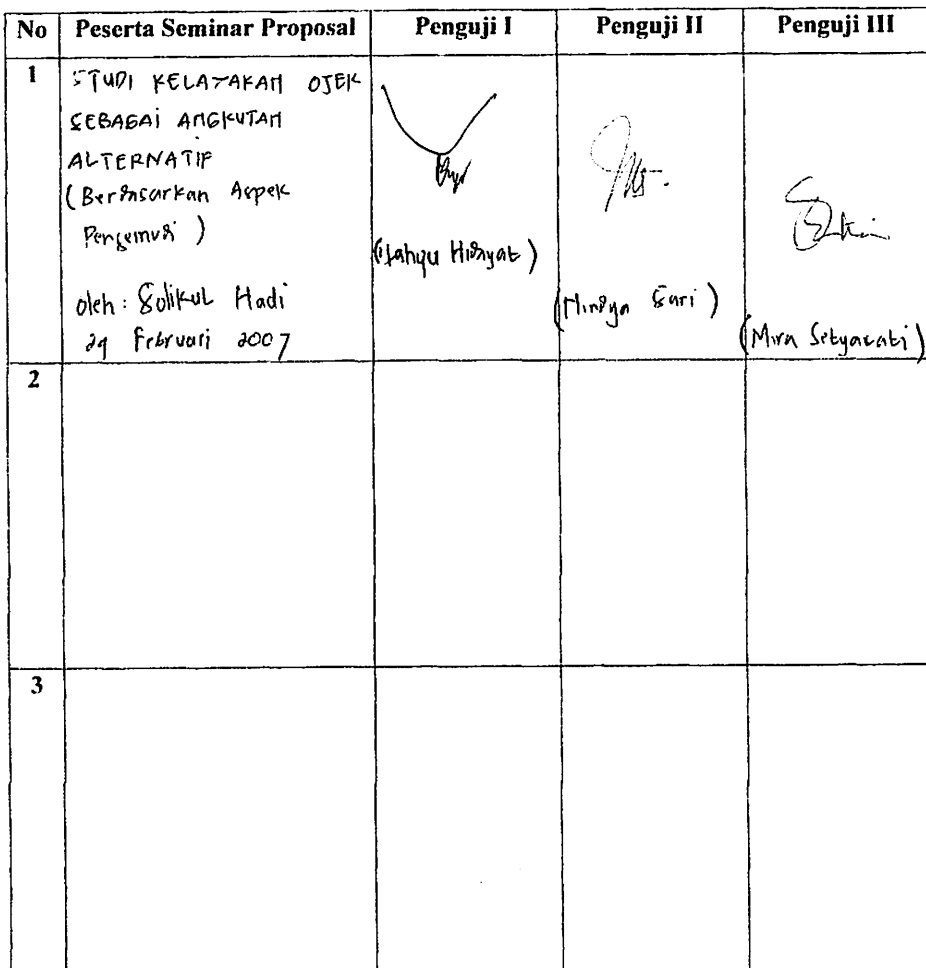 No Peserta Seminar Proposal Penguji I Penguji II Penguji III
1
STUDI KELAYAKAN OJEK
SEBAGAI ANGKUTAN
ALTERNATIF
(Berdasarkan Aspek
Pengemudi)
oleh: Solikul Hadi
29 Februari 2007
(Wahyu Hidayat)
(Mindya Sari)
(Mira Setyawati)
2
3